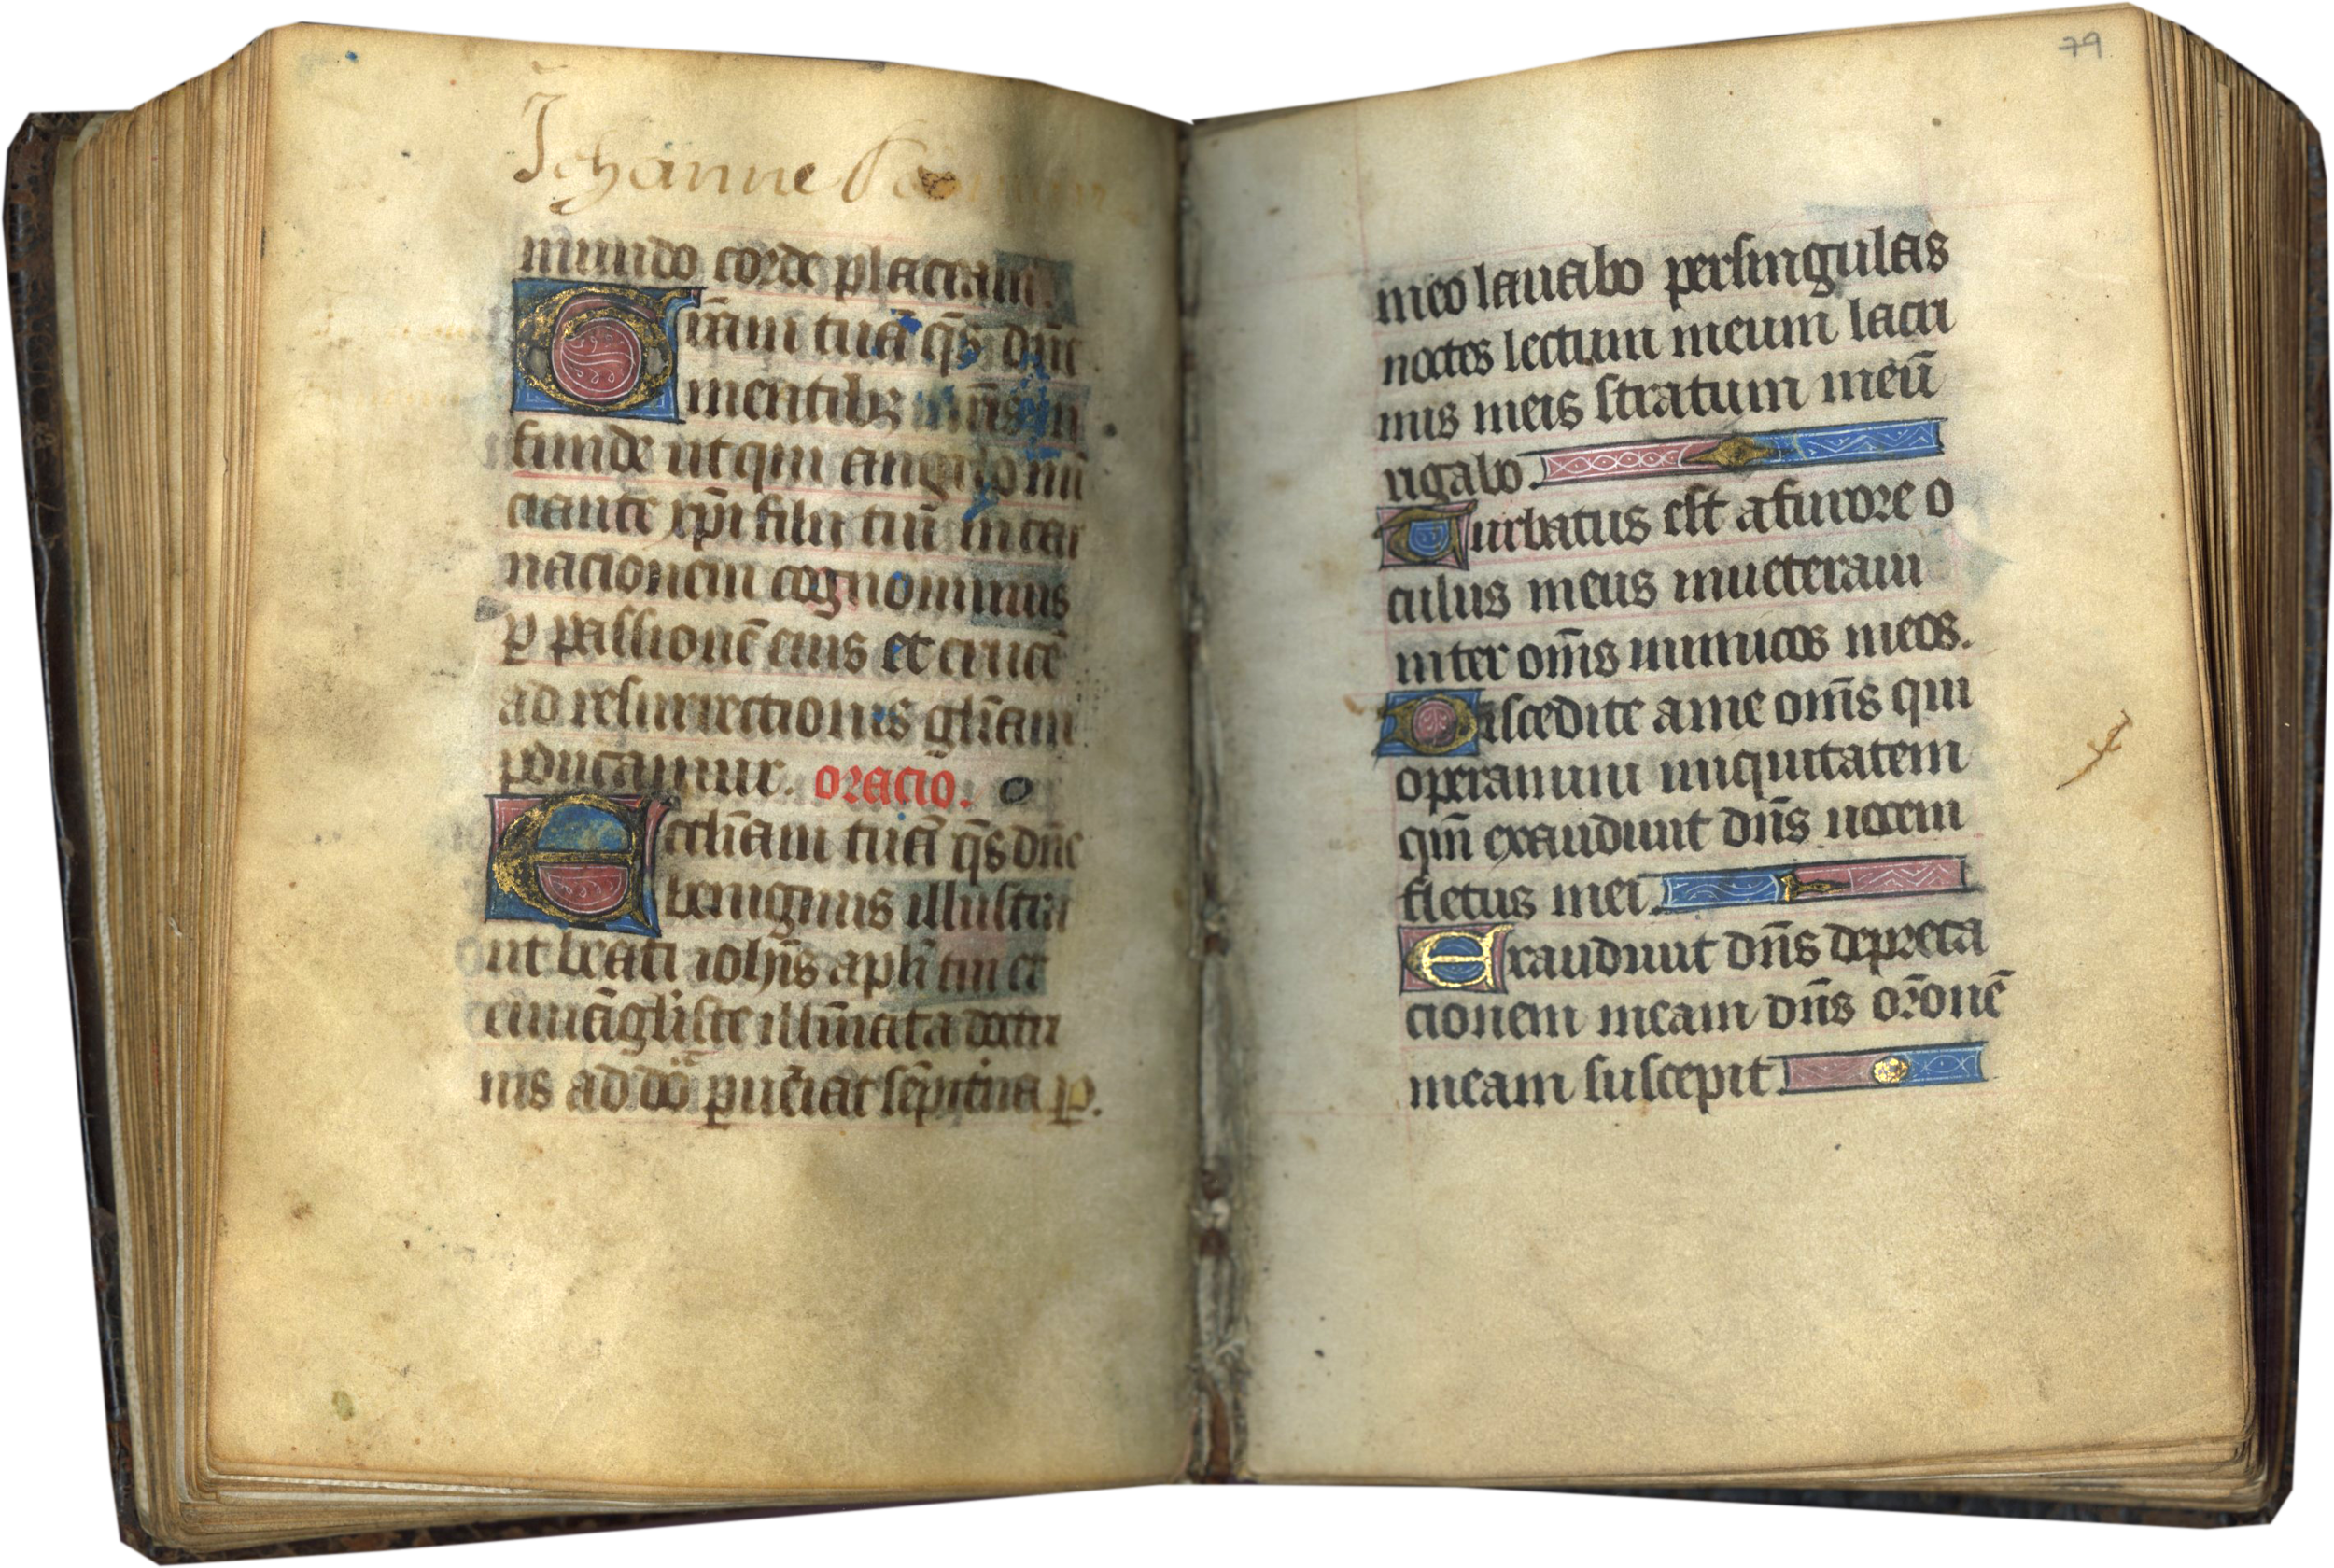 Johanne
mundo corde placeam.
Grām tuā q̄s dn̄e
mentibꝫ nr̄is in
funde ut qui angelo nū
ciante xp̄i filii tui incar
nacionem cognouimus
ꝑ passionē eius et crucē
ad resurrectionis gl̄iam
ꝑducamur. oracio.
Eccl̄iam tuā q̄s dn̄e
benignus illustra
ut beati ioh̄is apl̄i tui et
euuāgliste illūīata doctri
nis ad dōā ꝑuēiat sēpit̄na ꝑ.
79
meo lauabo persingulas
noctes lectum meum lacri
mis meis stratum meū
rigabo
Turbatus est a furore o
culus meus inueteraui
inter om̄s inimicos meos.
Discedite ame om̄s qui
operamini iniquitatem
qm̄ exaudiuit dn̄s uocem
fletus mei
Exaudiuit dn̄s depreca
cionem meam dn̄s or̄onē
meam suscepit